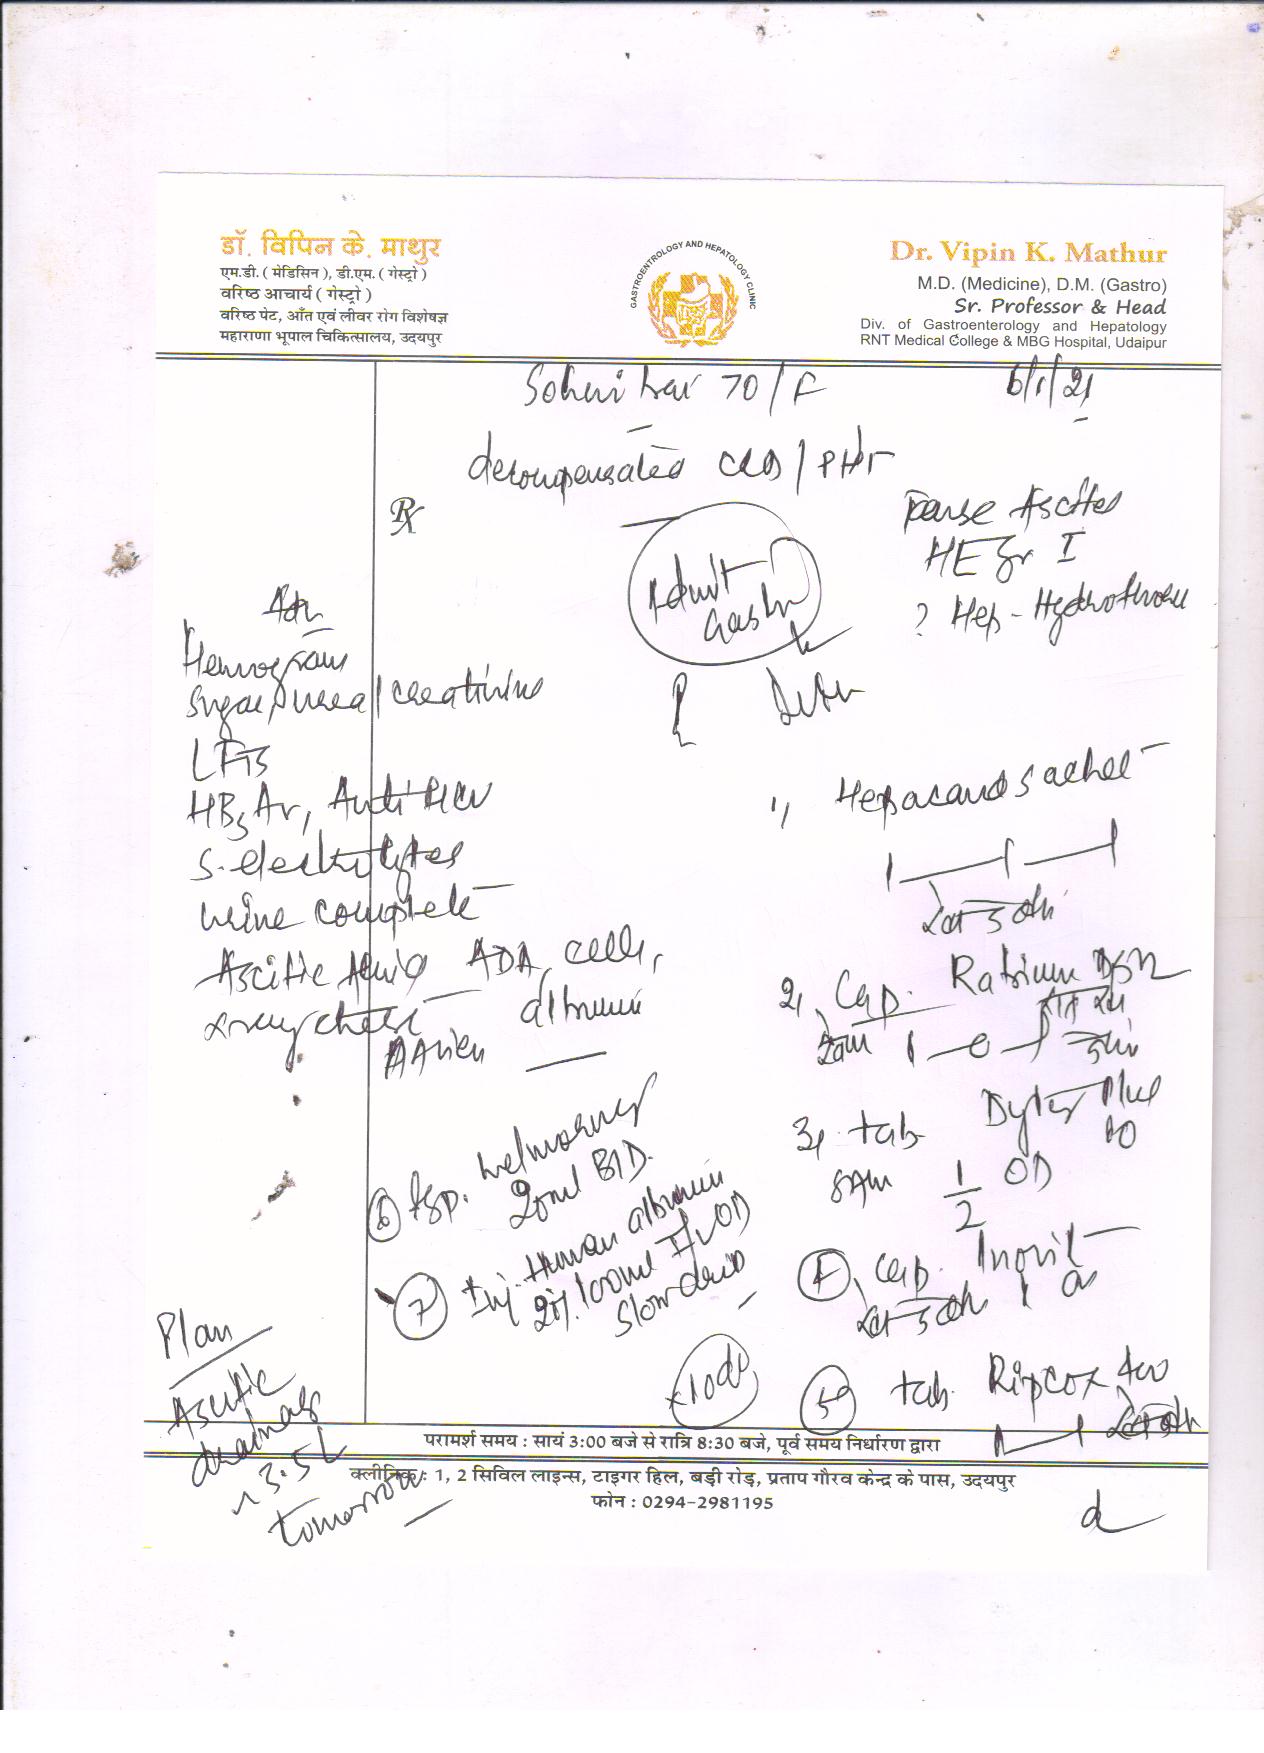 डॉ. विपिन के. माथुर
एम.डी. ( मेडिसिन ), डी.एम. ( गेस्ट्रो )
वरिष्ठ आचार्य ( गेस्ट्रो )
वरिष्ठ पेट, आँत एवं लीवर रोग विशेषज्ञ
महाराणा भूपाल चिकित्सालय, उदयपुर
GASTROENTROLOGY AND HEPATOLOGY CLINIC
Dr. Vipin K. Mathur
M.D. (Medicine), D.M. (Gastro)
Sr. Professor & Head
Div. of Gastroenterology and Hepatology
RNT Medical College & MBG Hospital, Udaipur
70/F
6/1/21
decompensated CLD/PHT
Rx
Tense Ascites
HE Gr I
? Hep-Hydrothorax
Admit
Gastro
Adv
Hemogram
Sugar/urea/creatinine
LFTs
HBsAg, Anti HCV
S. electrolytes
urine complete
Ascitic fluid ADA, cells,
albumin
x-ray chest
PA view
1, sachet
2, Cap.
1-0-1
3, tab Dytor Plus
10
8 AM 1/2 OD
4, Cap.
5 tab
6 Syp.
20ml BID
7 Inj. Human albumin
20% 100ml I/V OD
slow drip
x10d
Plan
Ascitic
drainage
~3.5L
tomorrow
परामर्श समय : सायं 3:00 बजे से रात्रि 8:30 बजे, पूर्व समय निर्धारण द्वारा
क्लीनिक : 1, 2 सिविल लाइन्स, टाइगर हिल, बड़ी रोड़, प्रताप गौरव केन्द्र के पास, उदयपुर
फोन : 0294-2981195